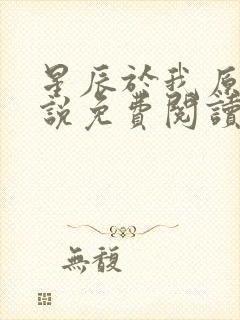 星辰於我原
說免費閱讀
無馥